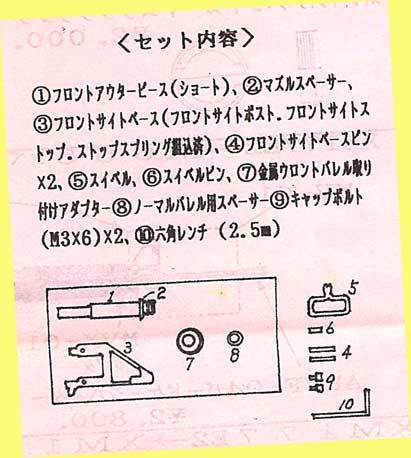 ＜セット内容＞
①フロントアウターピース(ショート)、②マズルスペーサー、
③フロントサイトベース(フロントサイトポスト.フロントサイトス
トップ.ストップスプリング組込済)、④フロントサイトベースピン
X2、⑤スイベル、⑥スイベルピン、⑦金属ウロントバレル取り
付けアダプター⑧ノーマルバレル用スペーサー⑨キャップボルト
(M3X6)X2、⑩六角レンチ (2.5㎜)
1 2
3
7
8
5
6
4
9
10